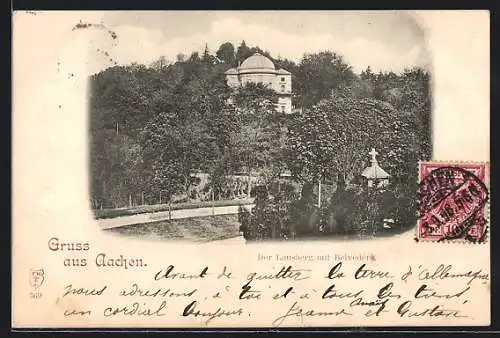 Der Lousberg mit Belvedere.
Gruss
aus Aachen.
Avant de quitter la terre d'Allemagne
nous adressons, à toi et à tous les tiens,
un cordial bonjour. Jeanne et Gustave